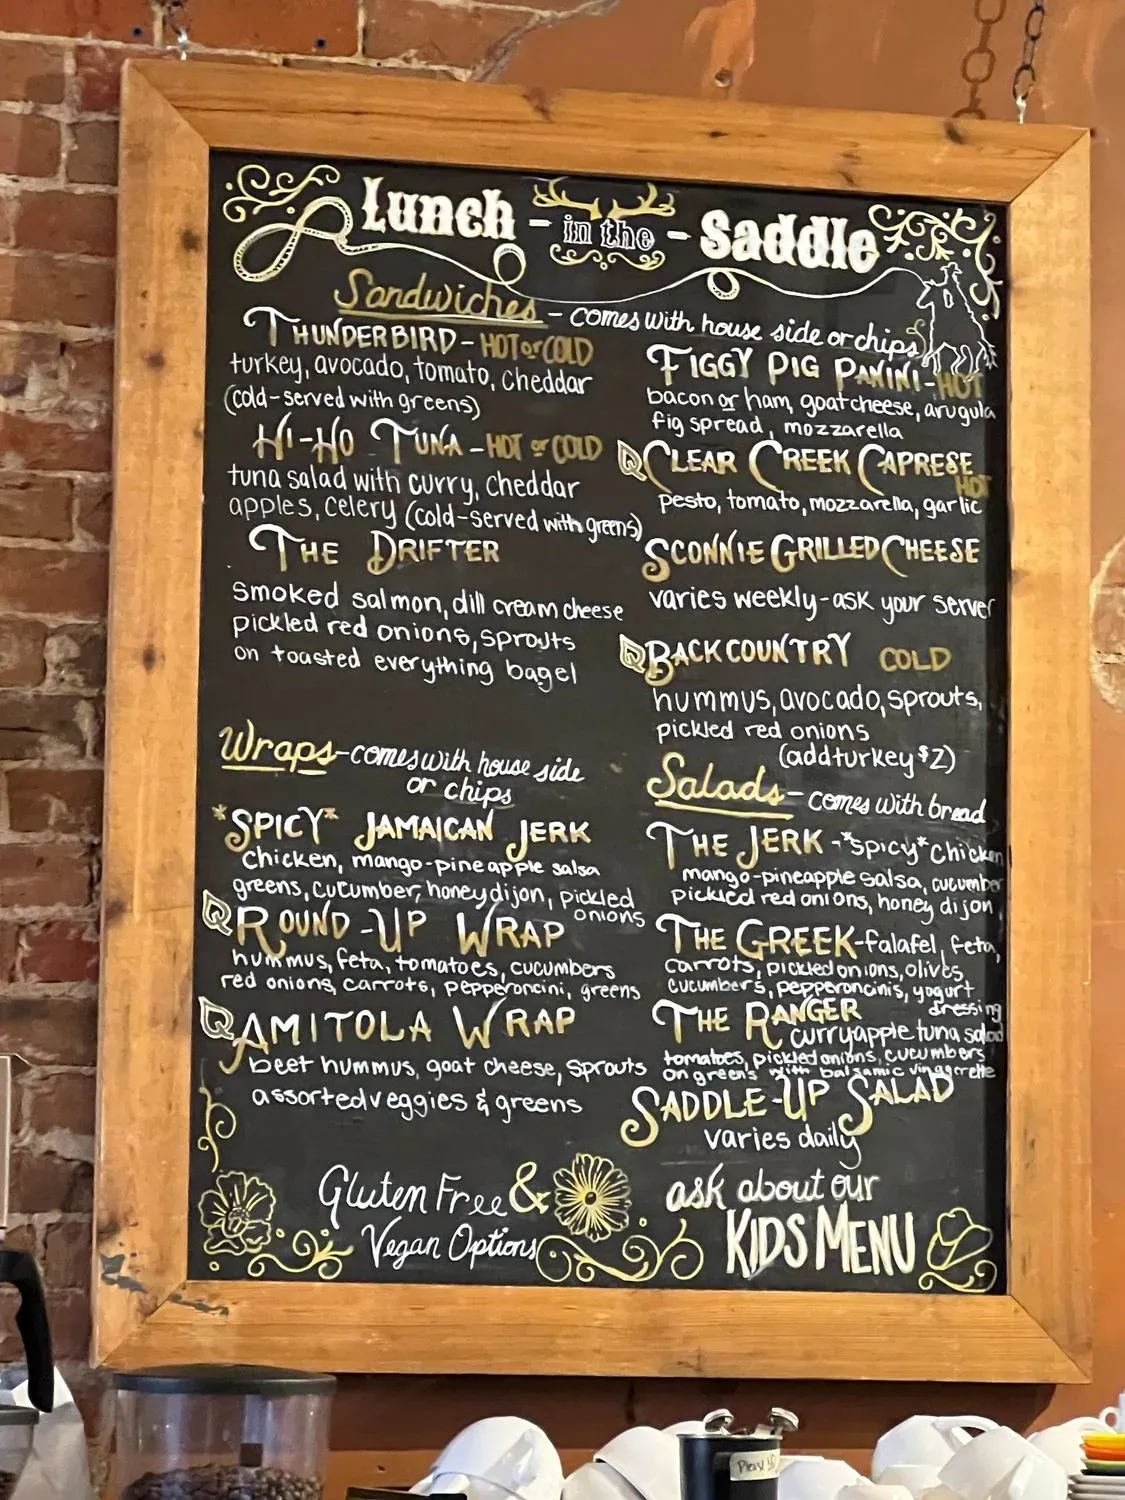 Lunch - in the - Saddle
Sandwiches - comes with house side or chips
THUNDERBIRD - HOT or COLD
turkey, avocado, tomato, cheddar
(cold-served with greens)
HI-HO TUNA - HOT or COLD
tuna salad with curry, cheddar
apples, celery (cold-served with greens)
THE DRIFTER
smoked salmon, dill cream cheese
pickled red onions, sprouts
on toasted everything bagel
FIGGY PIG PANINI - HOT
bacon or ham, goat cheese, arugula
fig spread, mozzarella
CLEAR CREEK CAPRESE
HOT
pesto, tomato, mozzarella, garlic
SCONNIE GRILLED CHEESE
varies weekly - ask your server
BACKCOUNTRY COLD
hummus, avocado, sprouts,
pickled red onions
(add turkey $2)
Wraps - comes with house side
or chips
*SPICY* JAMAICAN JERK
Chicken, mango-pineapple salsa
greens, cucumber, honey dijon, pickled
onions
ROUND-UP WRAP
hummus, feta, tomatoes, cucumbers
red onions, carrots, pepperoncini, greens
AMITOLA WRAP
beet hummus, goat cheese, sprouts
assorted veggies & greens
Salads - comes with bread
THE JERK - *spicy* Chicken
mango-pineapple salsa, cucumber
pickled red onions, honey dijon
THE GREEK - falafel, feta,
carrots, pickled onions, olives,
cucumbers, pepperoncinis, yogurt
dressing
THE RANGER
curry apple tuna salad
tomatoes, pickled onions, cucumbers
on greens with balsamic vinagrette
SADDLE-UP SALAD
varies daily
Gluten Free &
Vegan Options
ask about our
KIDS MENU